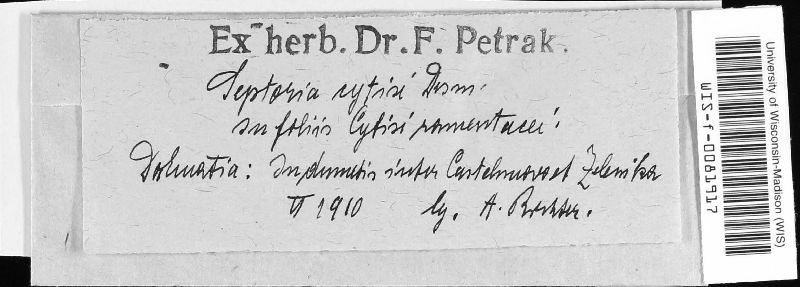 Ex herb. Dr. F. Petrak.
Septoria cytisi Desm.
In foliis Cytisi ramentacei.
Dalmatia: In dumetis inter Castelnuovo et Zelenika
VI 1910 lg. A.
University of Wisconsin-Madison (WIS)
WIS-f-0081917